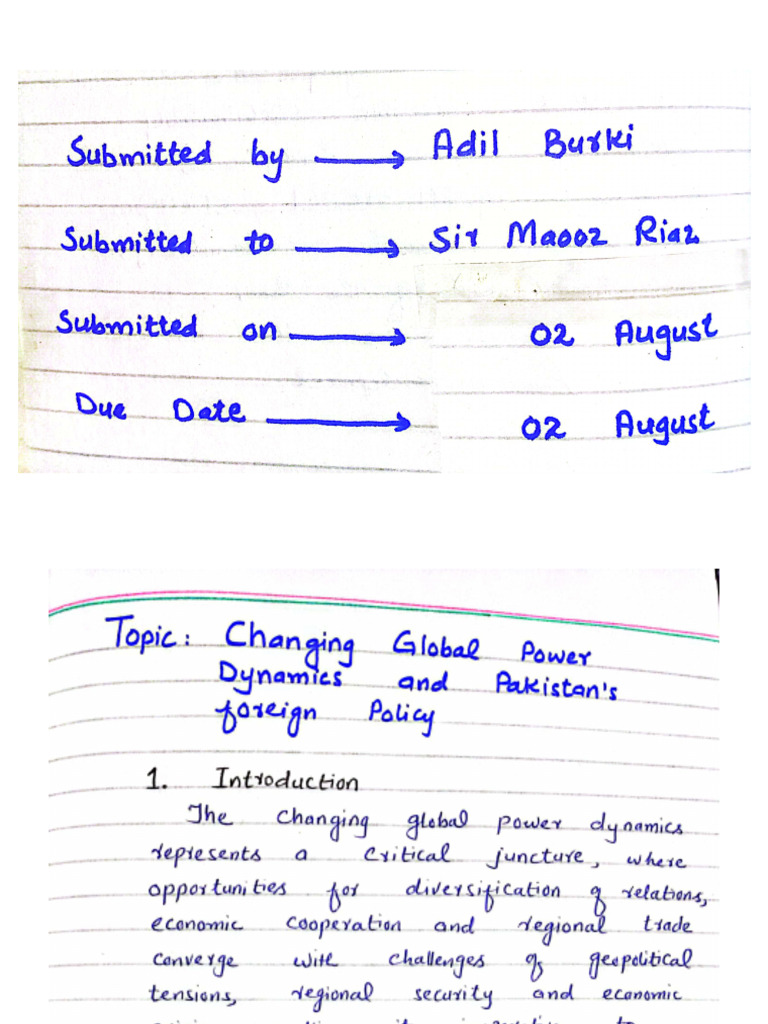 Submitted by → Adil Burki
Submitted to → Sir Maooz Riaz
Submitted on → 02 August
Due Date → 02 August
Topic: Changing Global Power
Dynamics and Pakistan's
foreign Policy
1. Introduction
The changing global power dynamics
represents a critical juncture, where
opportunities for diversification of relations,
economic cooperation and regional trade
converge with challenges of geopolitical
tensions, regional security and economic